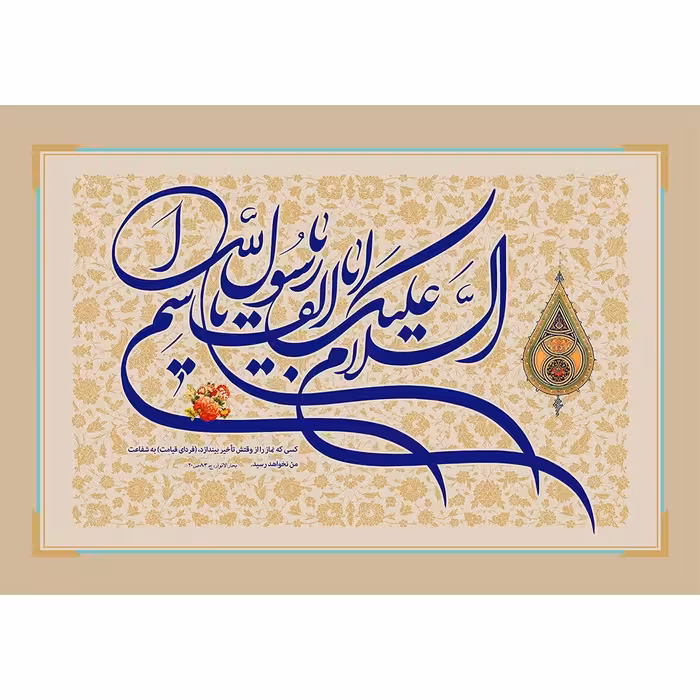 السَّلام علیک یا ابا القاسِم یا رسُول اللّٰه
کسی که نماز را از وقتش تأخیر بیندازد، (فردای قیامت) به شفاعت
من نخواهد رسید.
بحارالانوار، ج ۸۳، ص ۲۰